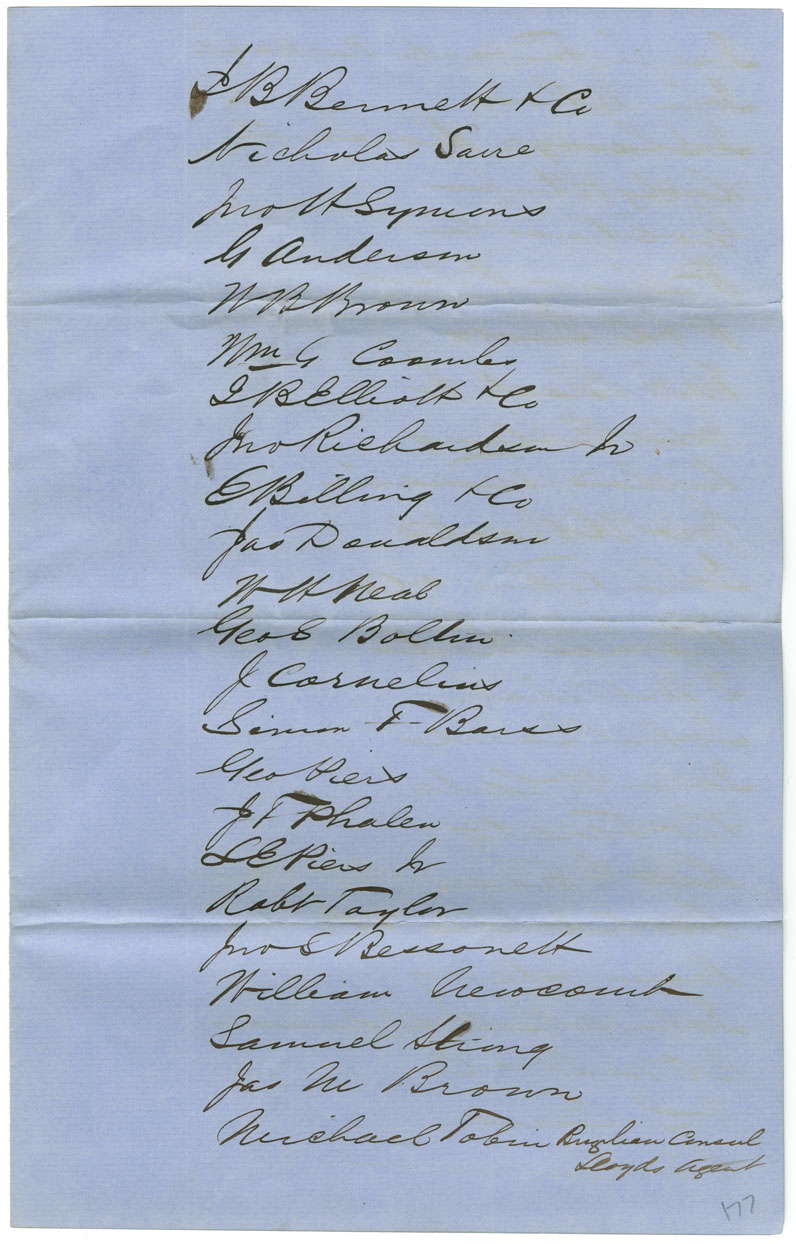 J B Bennett & Co
Nicholas Sarre
Jno H Symons
G Anderson
W B Brown
Wm G Coombs
J B Elliott & Co
Jno Richardson Jr
E Billing & Co
Jas Donaldson
W H Neal
Geo E Bolton
J Cornelius
Simon F Barss
Geo Piers
J F Phalen
L E Piers Jr
Robt Taylor
Jno S Bessonett
William Newcomb
Samuel Strong
Jas M Brown
Michael Tobin Brazilian Consul
Lloyds Agent
177